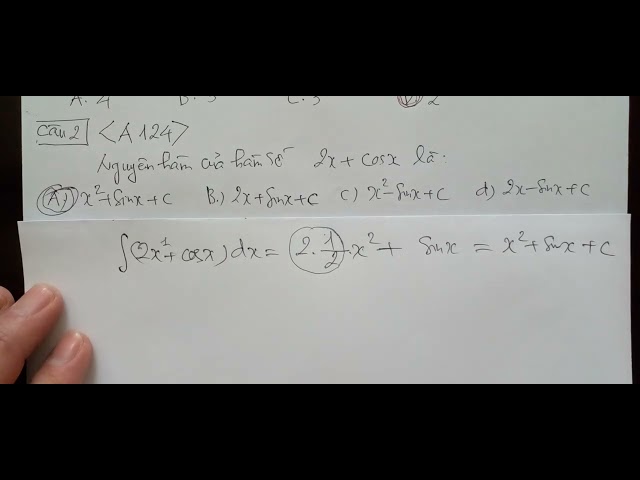 A. 4 B. 3 C. 3 D 2
Câu 2 <A 124>
Nguyên hàm của hàm số 2x + cosx là:
A) x² + sinx + c B.) 2x + sinx + c c) x² - sinx + c d) 2x - sinx + c
∫(2x¹ + cosx) dx = 2.1/2.x² + sinx = x² + sinx + c